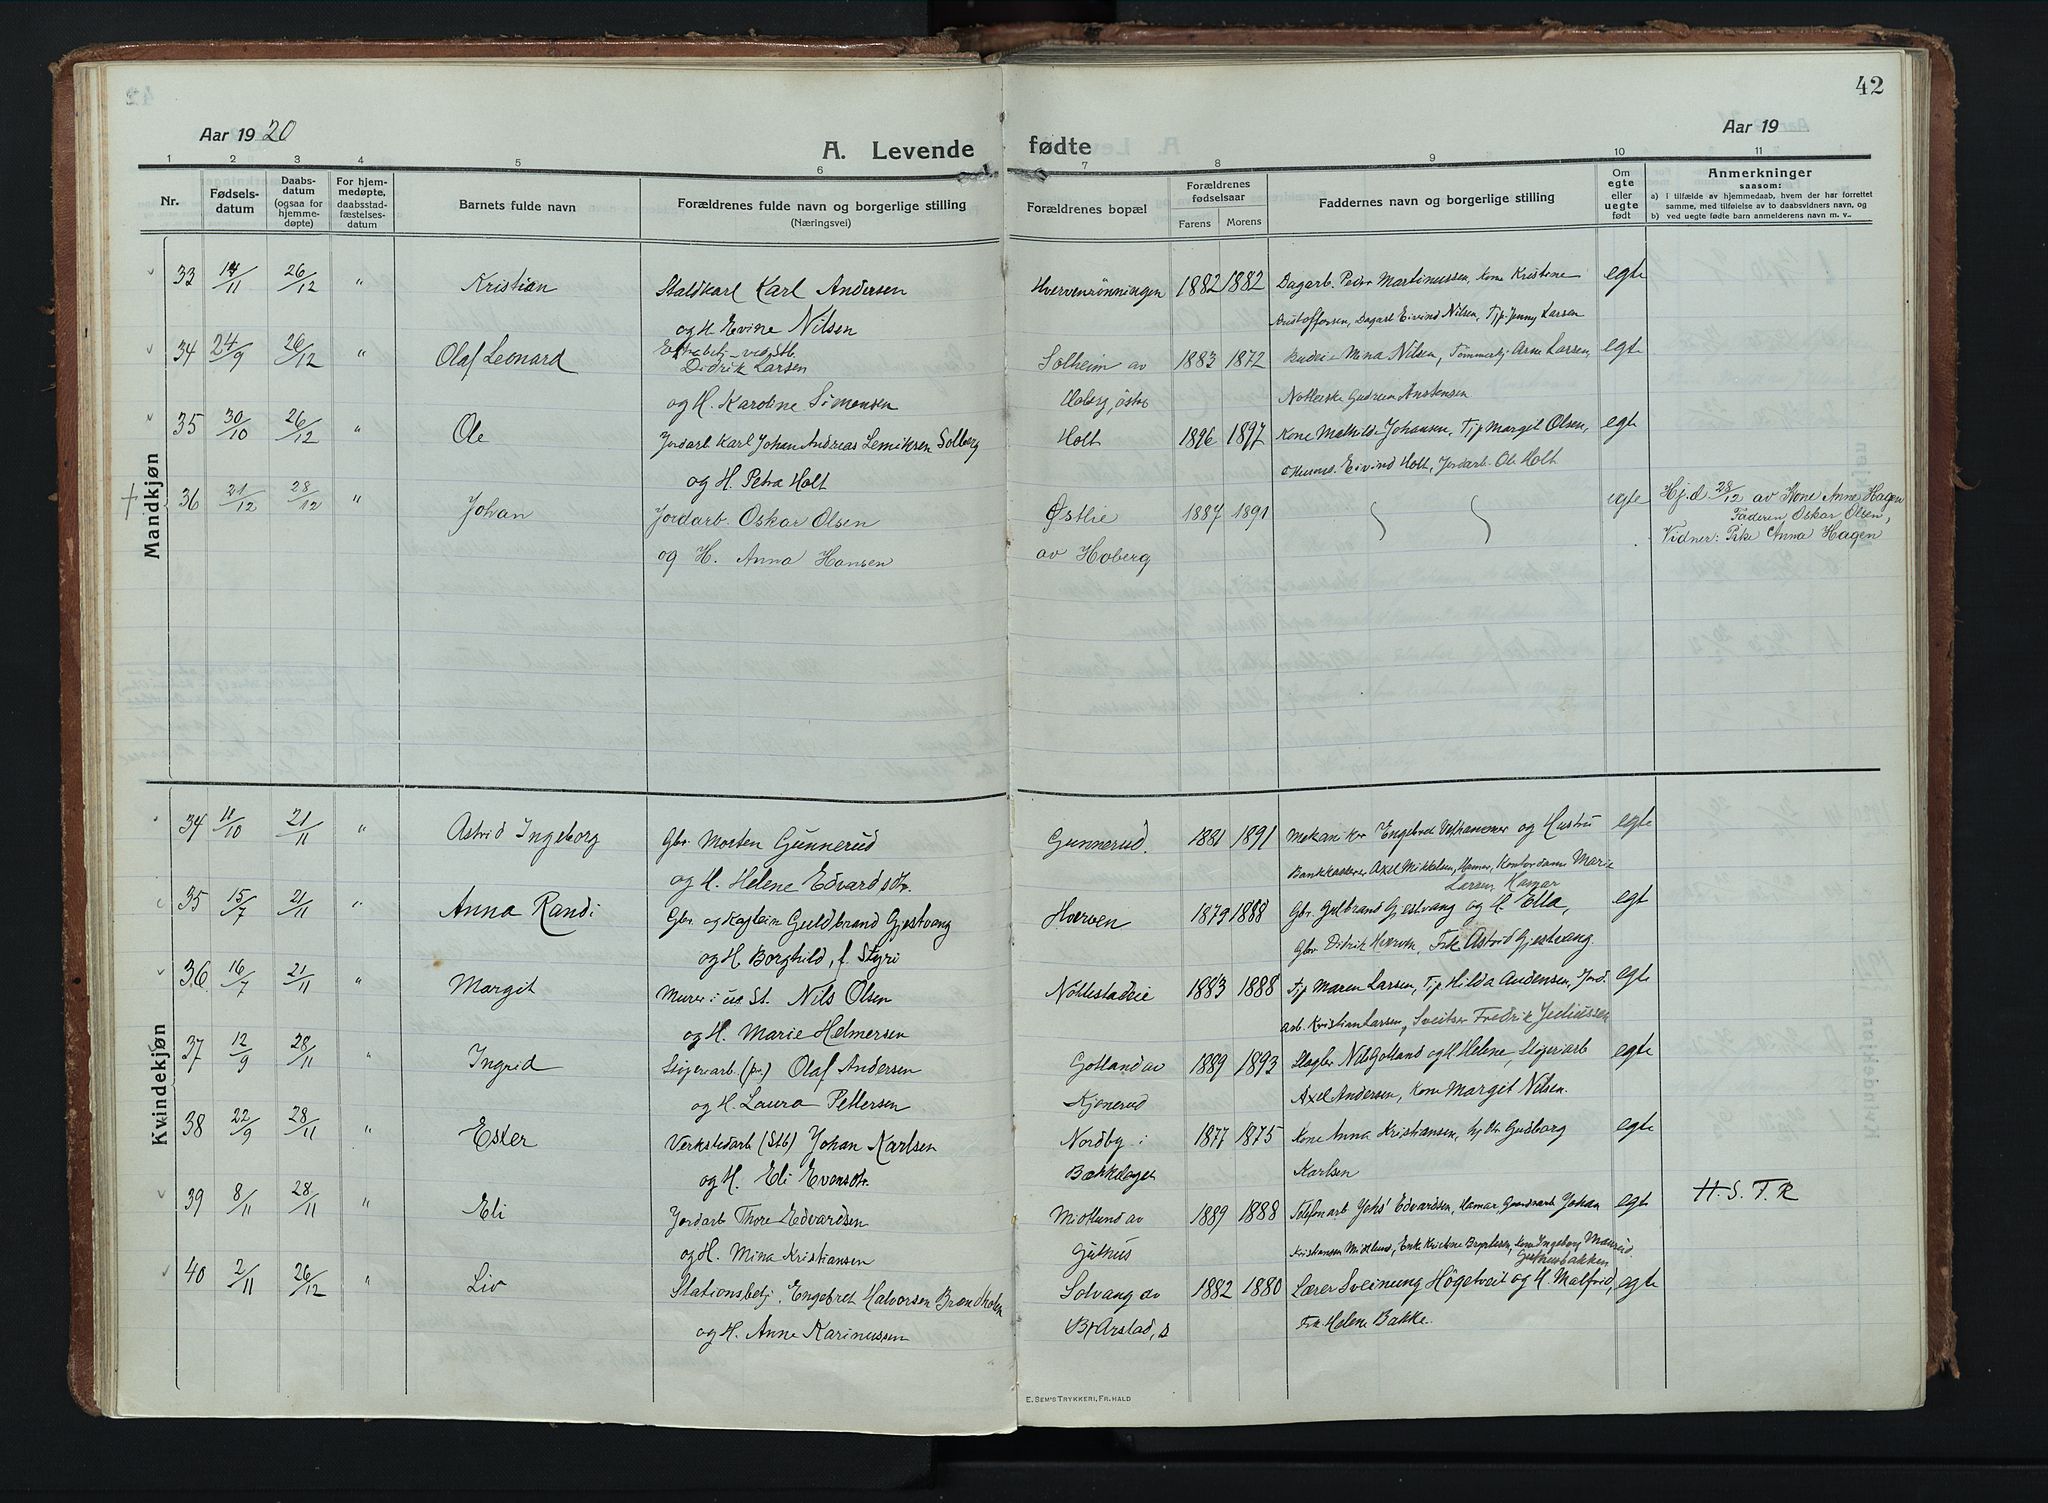 42
Aar 1920
A. Levende fødte
Aar 19
1 2 3 4 5 6 7 8 9 10 11
Nr.
Fødsels-
datum
Daabs-
datum
(ogsaa for
hjemme-
døpte)
For hjem-
medøpte,
daabsstad-
fæstelses-
datum
Barnets fulde navn
Forældrenes fulde navn og borgerlige stilling
(Næringsvei)
Forældrenes bopæl
Forældrenes
fødselsaar
Farens Morens
Faddernes navn og borgerlige stilling
Om
egte
eller
uegte
født
Anmerkninger
saasom:
a) i tilfælde av hjemmedaab, hvem der har forrettet
samme, med tilføielse av to daabsvidners navn, og
b) ved uegte fødte barn anmelderens navn m. v..
Mandkjøn
33 14/11 26/12 " Kristian Staldkarl Karl Andersen Hvervenrønningen 1882 1882 Dagarb. Peder Martinussen, Kone Kristine egte
og H. Evine Nilsen Kristoffersen, Dagarb Eivind Nilsen, Tjp. Jenny Larsen
34 24/9 26/12 " Olaf Leonard Didrik Larsen Solheim av 1883 1872 Budeie Mina Nilsen, Tømmerhj Arne Larsen, egte
og H. Karoline Simensen Hoberg, østre Gudrun Anstensen
35 30/10 26/12 " Ole Jordarb Karl Johan Andreas Lemiksen Solberg Holt 1896 1897 Kone Mathilde Johansen, Tjp Margit Olsen, egte
og H. Petra Holt Eivind Holt, Jordarb. Ole Holt
† 36 21/12 28/12 " Johan Jordarb. Oskar Olsen Østlie 1887 1891 egte Hj.d 28/12 av Kone Anne Hagen
og H. Anna Hansen av Hoberg Faderen Oskar Olsen,
Vidner: Pike Anna Hagen
Kvindekjøn
34 11/10 21/11 " Astrid Ingeborg Gbr. Morten Gunnerud Gunnerud. 1881 1891 Mekaniker Engebret og Hustru egte
og H. Helene Edvardsdtr. Bankkasserer Axel Mikkelsen, Hamar, Kontordame Marie
Larsen, Hamar
35 15/7 21/11 " Anna Randi Gbr og Kaptein Guldbrand Gjestvang Hverven 1879 1888 Gbr. Gulbrand Gjestvang og H. Ella, egt
og H Borghild, f. Styri Gbr Didrik Hverven, Frk Astrid Gjestvang.
36. 16/7 21/11 " Margit Murer i ua St. Nils Olsen Nøttestadeie 1883 1888 Tjp Maren Larsen, Tjp Hilda Andensen, Jord. egte
og H. Marie Helmersen arb. Kristian Larsen, Sveitser Fredrik Juliussen
37 12/9 28/11 " Ingrid Sligeriarb (pr.) Olaf Andersen Gotland av 1889 1893 Slagter Nils Gotland og H Helene, Sligeriarb egte
og H. Laura Pettersen Kjonerud Axel Andersen, Kone Margit Nilsen.
38 22/9 28/11 " Ester Verkstedarb (Stb) Johan Karlsen Nordby i 1877 1875 Kone Anna Kristiansen, Gudborg egte
og H. Eli Evensdtr. Bækkelaget Karlsen
39 8/11 28/11 " Eli Jordarb Thore Edvardsen Midtlund av 1889 1888 Telefonarb Johs' Edvardsen, Hamar, Johan egte H. S. F. R
og H. Mina Kristiansen Guthus Kristiansen Midtlund, Enke Kristine, Kone Ingeborg Maurud.
Guthusbakken
40 2/11 26/12 " Liv Stationsbetj. Engebret Halvorsen Brændholen Solvang av 1882 1880 Lærer Sveinung Högetveit og H. Malfrid, egte
og H. Anne Karinussen B. Arstad, s Frk. Helene Bakke.
E. SEM'S TRYKKERI, FR.HALD